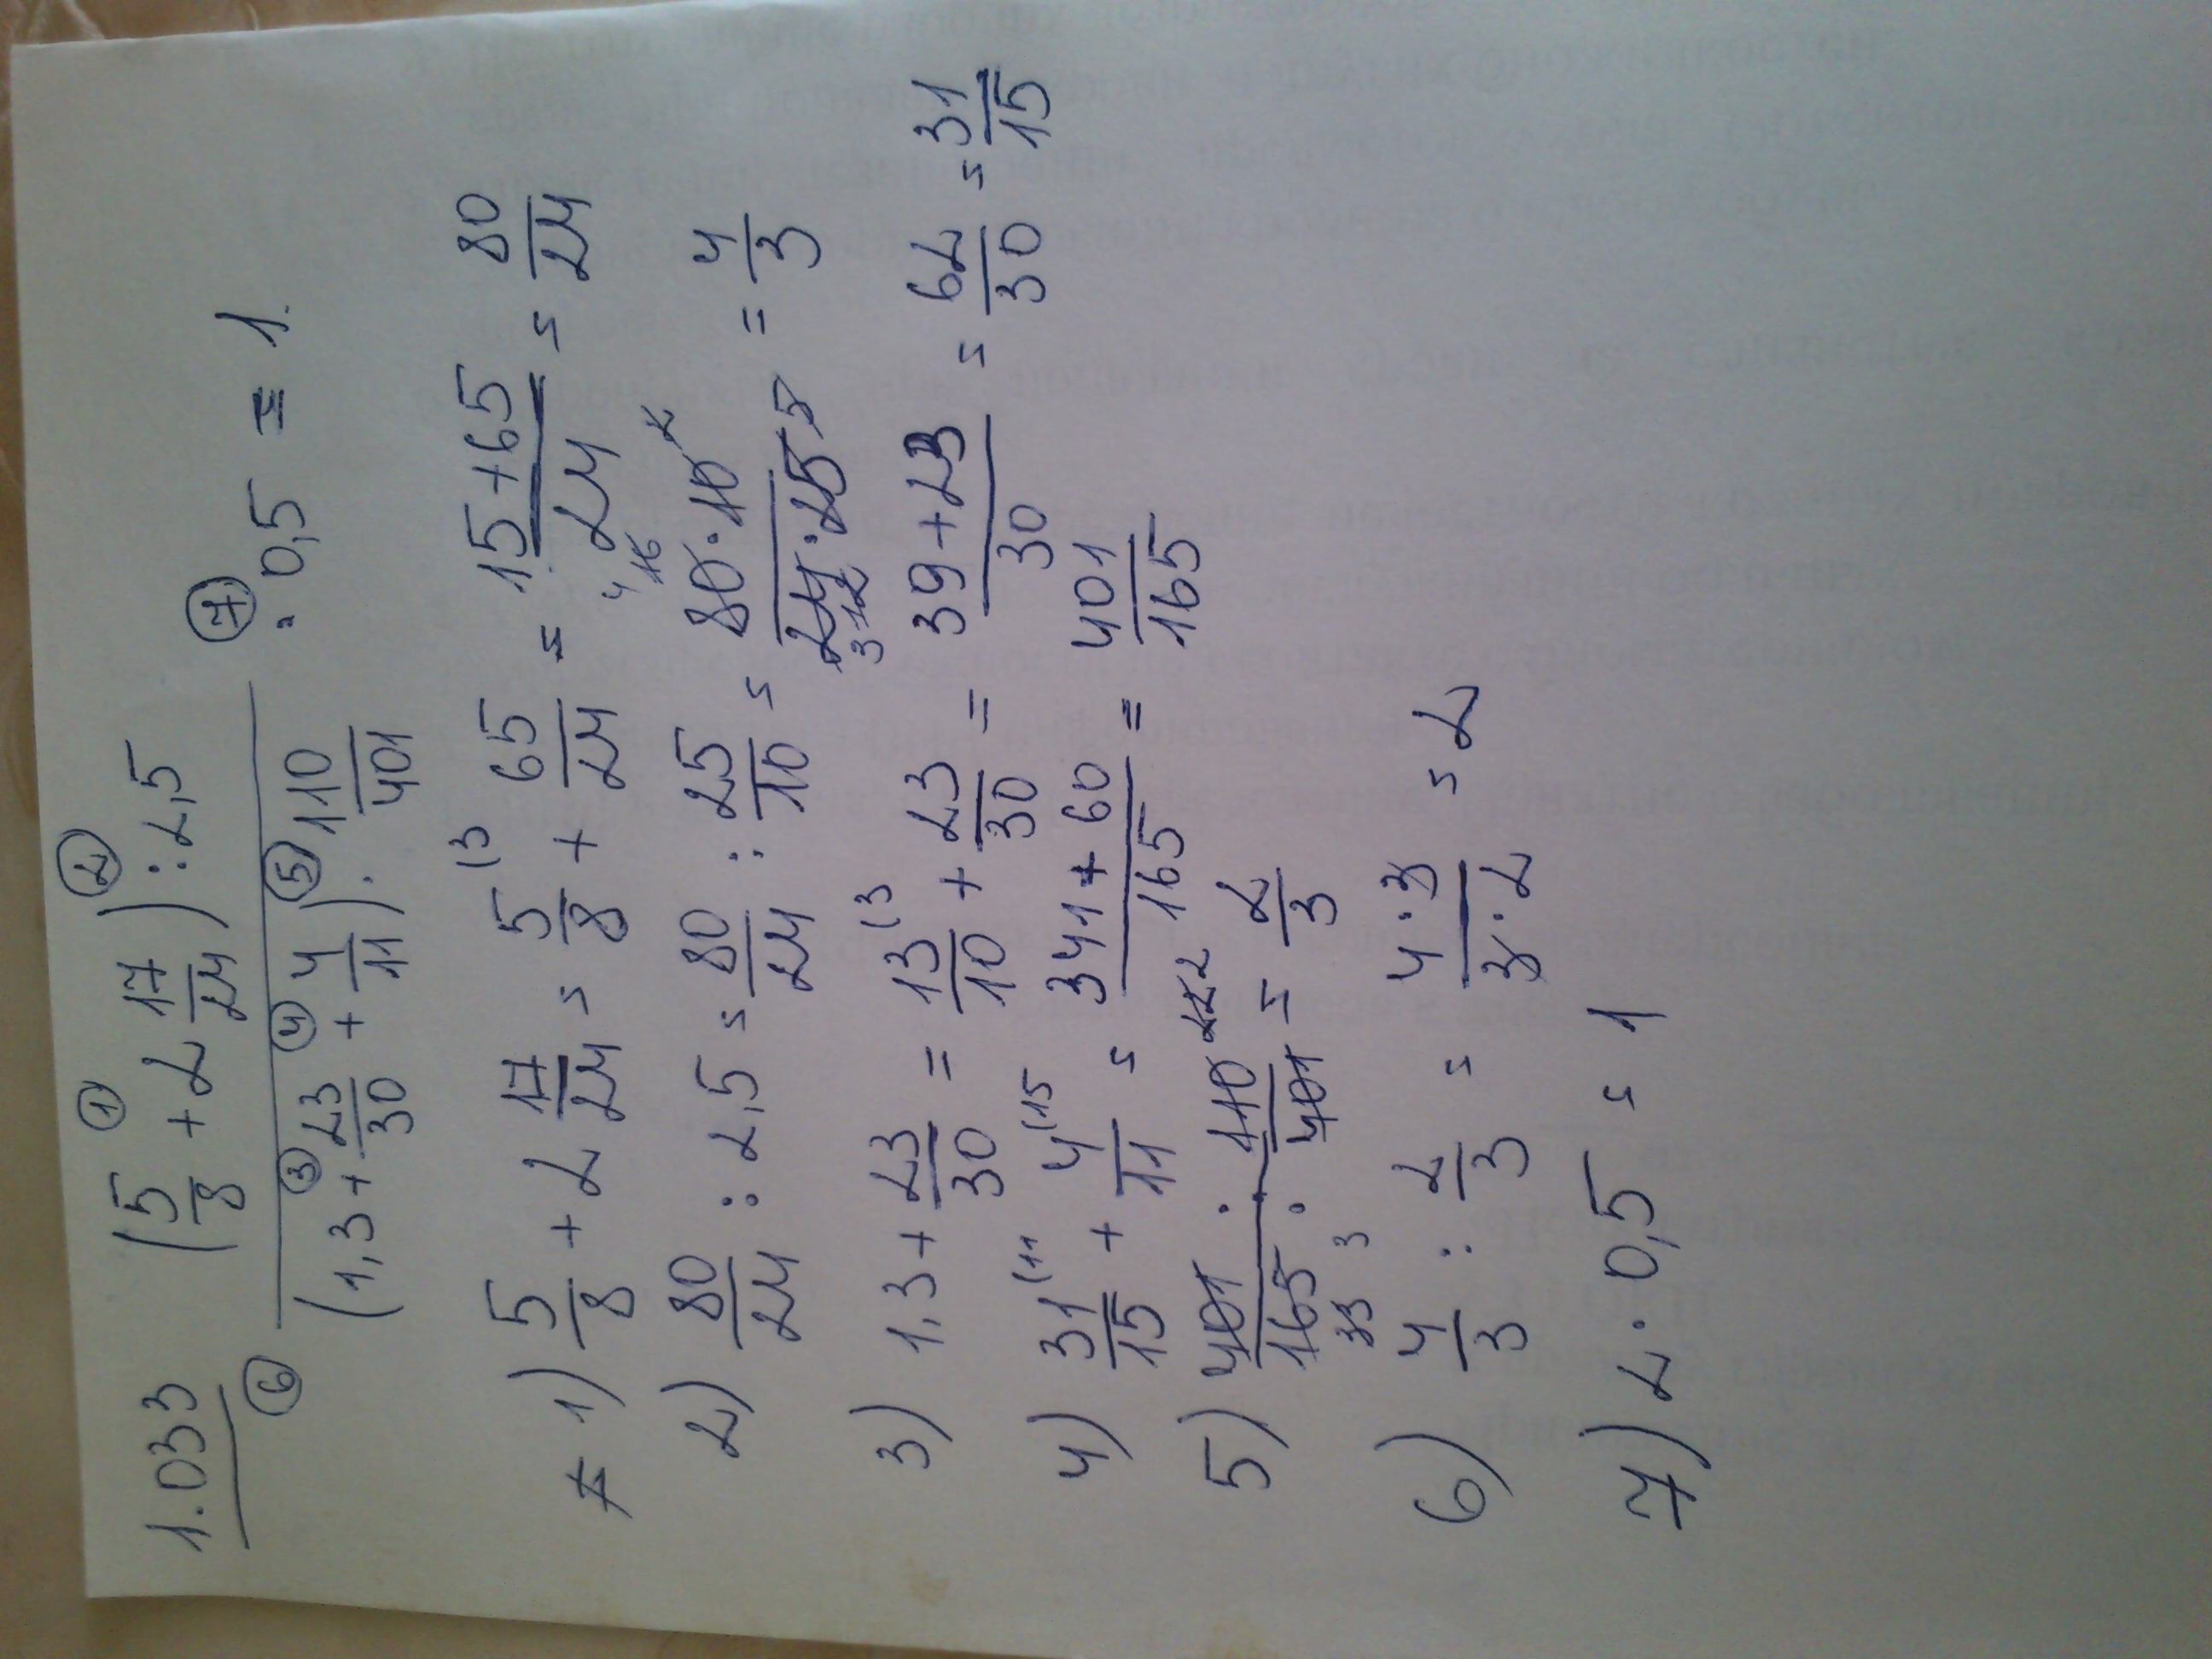 1.033
① ②
(5/8 + 2 17/24) : 2,5 ⑦
⑥ ――――――― · 0,5 = 1.
③ ④ ⑤
(1,3 + 23/30 + 4/11) · 110/401
1) 5/8 + 2 17/24 = 5/8 (3 + 65/24 = (15+65)/24 = 80/24
2) 80/24 : 2,5 = 80/24 : 25/10 = (80·10)/(24·25) = 4/3
3) 1,3 + 23/30 = 13/10 (3 + 23/30 = (39+23)/30 = 62/30 = 31/15
4) 31/15 (11 + 4/11 (15 = (341+60)/165 = 401/165
5) 401/165 · 110/401 = 2/3
6) 4/3 : 2/3 = (4·3)/(3·2) = 2
7) 2·0,5 = 1